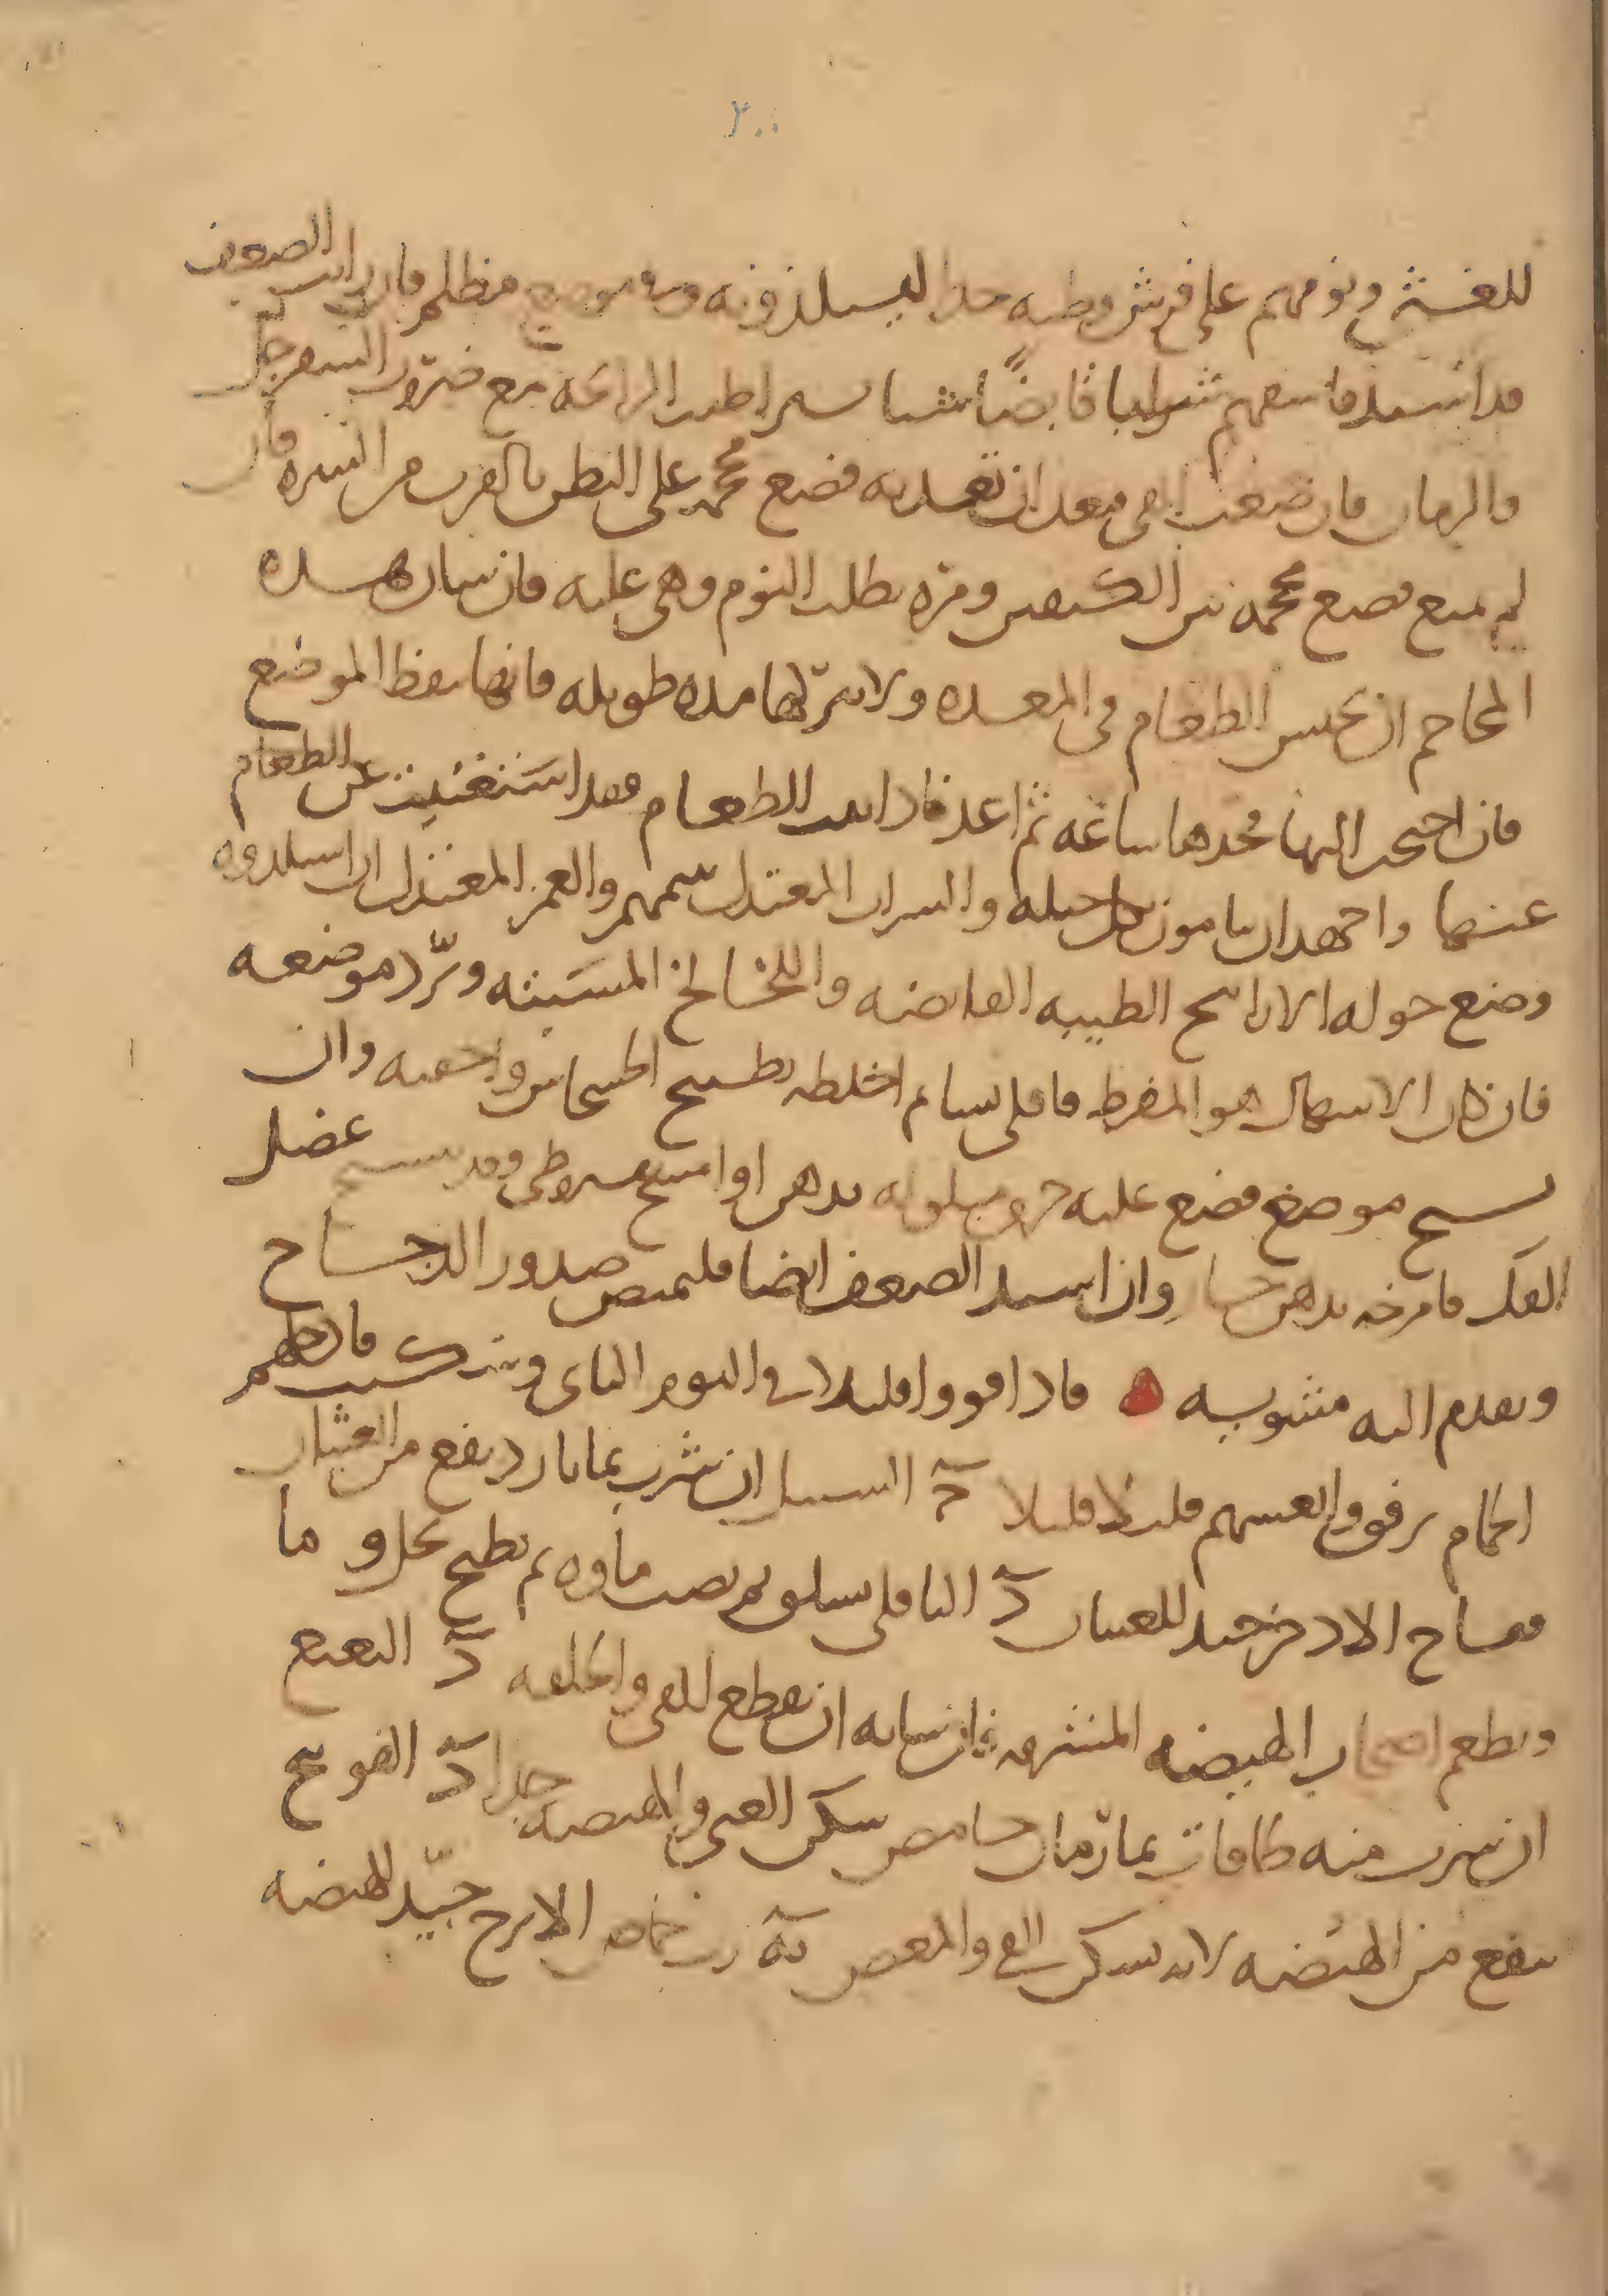 ٢٠٠
للغشي ونومهم على فرش وطيه جدا ليستلذونه وفي موضع مظلم فان رايت الصعف
قد اشتد فاسقهم شرابا قابضًا شيا يسيرا طيب الرائحه مع ضروب السفرجل
والرمان فان ضعف القي بعد ان تغديه فضع محجمه على البطن بالقرب من السره فان
لم يمتع فضع محجمه بين الكتفين ومره بطلب النوم وهي عليه فان شان هذه
المحاجم ان تحبس الطعام في المعده ولا تتركها مده طويله فانها تنفط الموضع
فان احتجت اليها فخذها ساعه ثم اعد فاذا ثبت الطعام فقد استغنيت عن الطعام
عنها واجتهد ان يناموا بكل حيله والشراب المعتدل ينيمهم والغمز المعتدل ان استلذوه
وضع حوله الاراييح الطيبه القابضه واللخالخ المسبته وبرّد موضعه
فان كان الاسهال هو المفرط فاقلي سيا ثم اخلطه بطبيخ الخشخاش واحقنه وان
تشنج موضع فضع عليه خرق مبلوله بدهن او امسح بقيروطي وقد يتشنج عضل
الفك فامرخه بدهن حار وان اشتد الضعف ايضا فليمتص صدور الدجاج
ويقدم اليه مشويه فاذا قووا قليلا في اليوم الثاني فادخلهم
الحمام برفق وانعشهم قليلا قليلا السنبل ان شرب بما بارد ينفع من الغثيان
فقاح الاذخر جيد للغثيان د الباقلي يسلق ثم يصب ماوه ثم يطبخ بخل وما
ويطعم اصحاب الهيضه المنتشره فان شانه ان يقطع القي والخلفه د النعنع
ان شرب منه طاقات بما رمان حامض سكن القي والهيضه جدا د الفوتنج
ينفع من الهيضه لانه يسكن القي والمغص رب حماض الاترج جيّد للهيضه